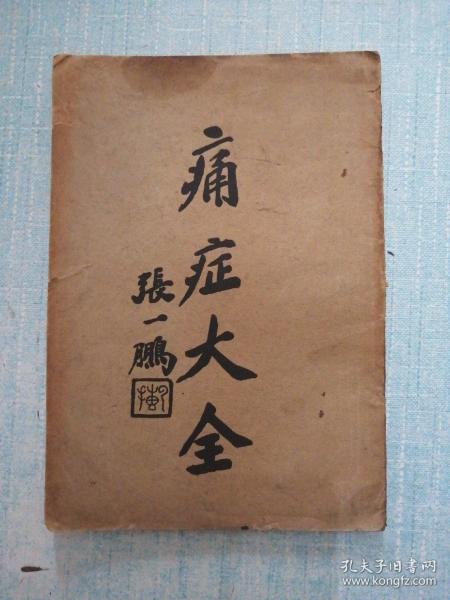 痛症大全
張一鵬
孔夫子旧书网
www.kongfz.com